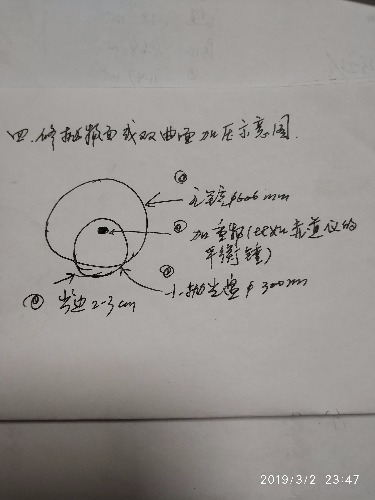 四.修抛物面或双曲面加压示意图.
① 主镜φ606mm
② 加重物(EQ赤道仪的
平衡锤)
③ 小抛光盘φ300mm
④ 出边2-3cm
2019/3/2 23:47